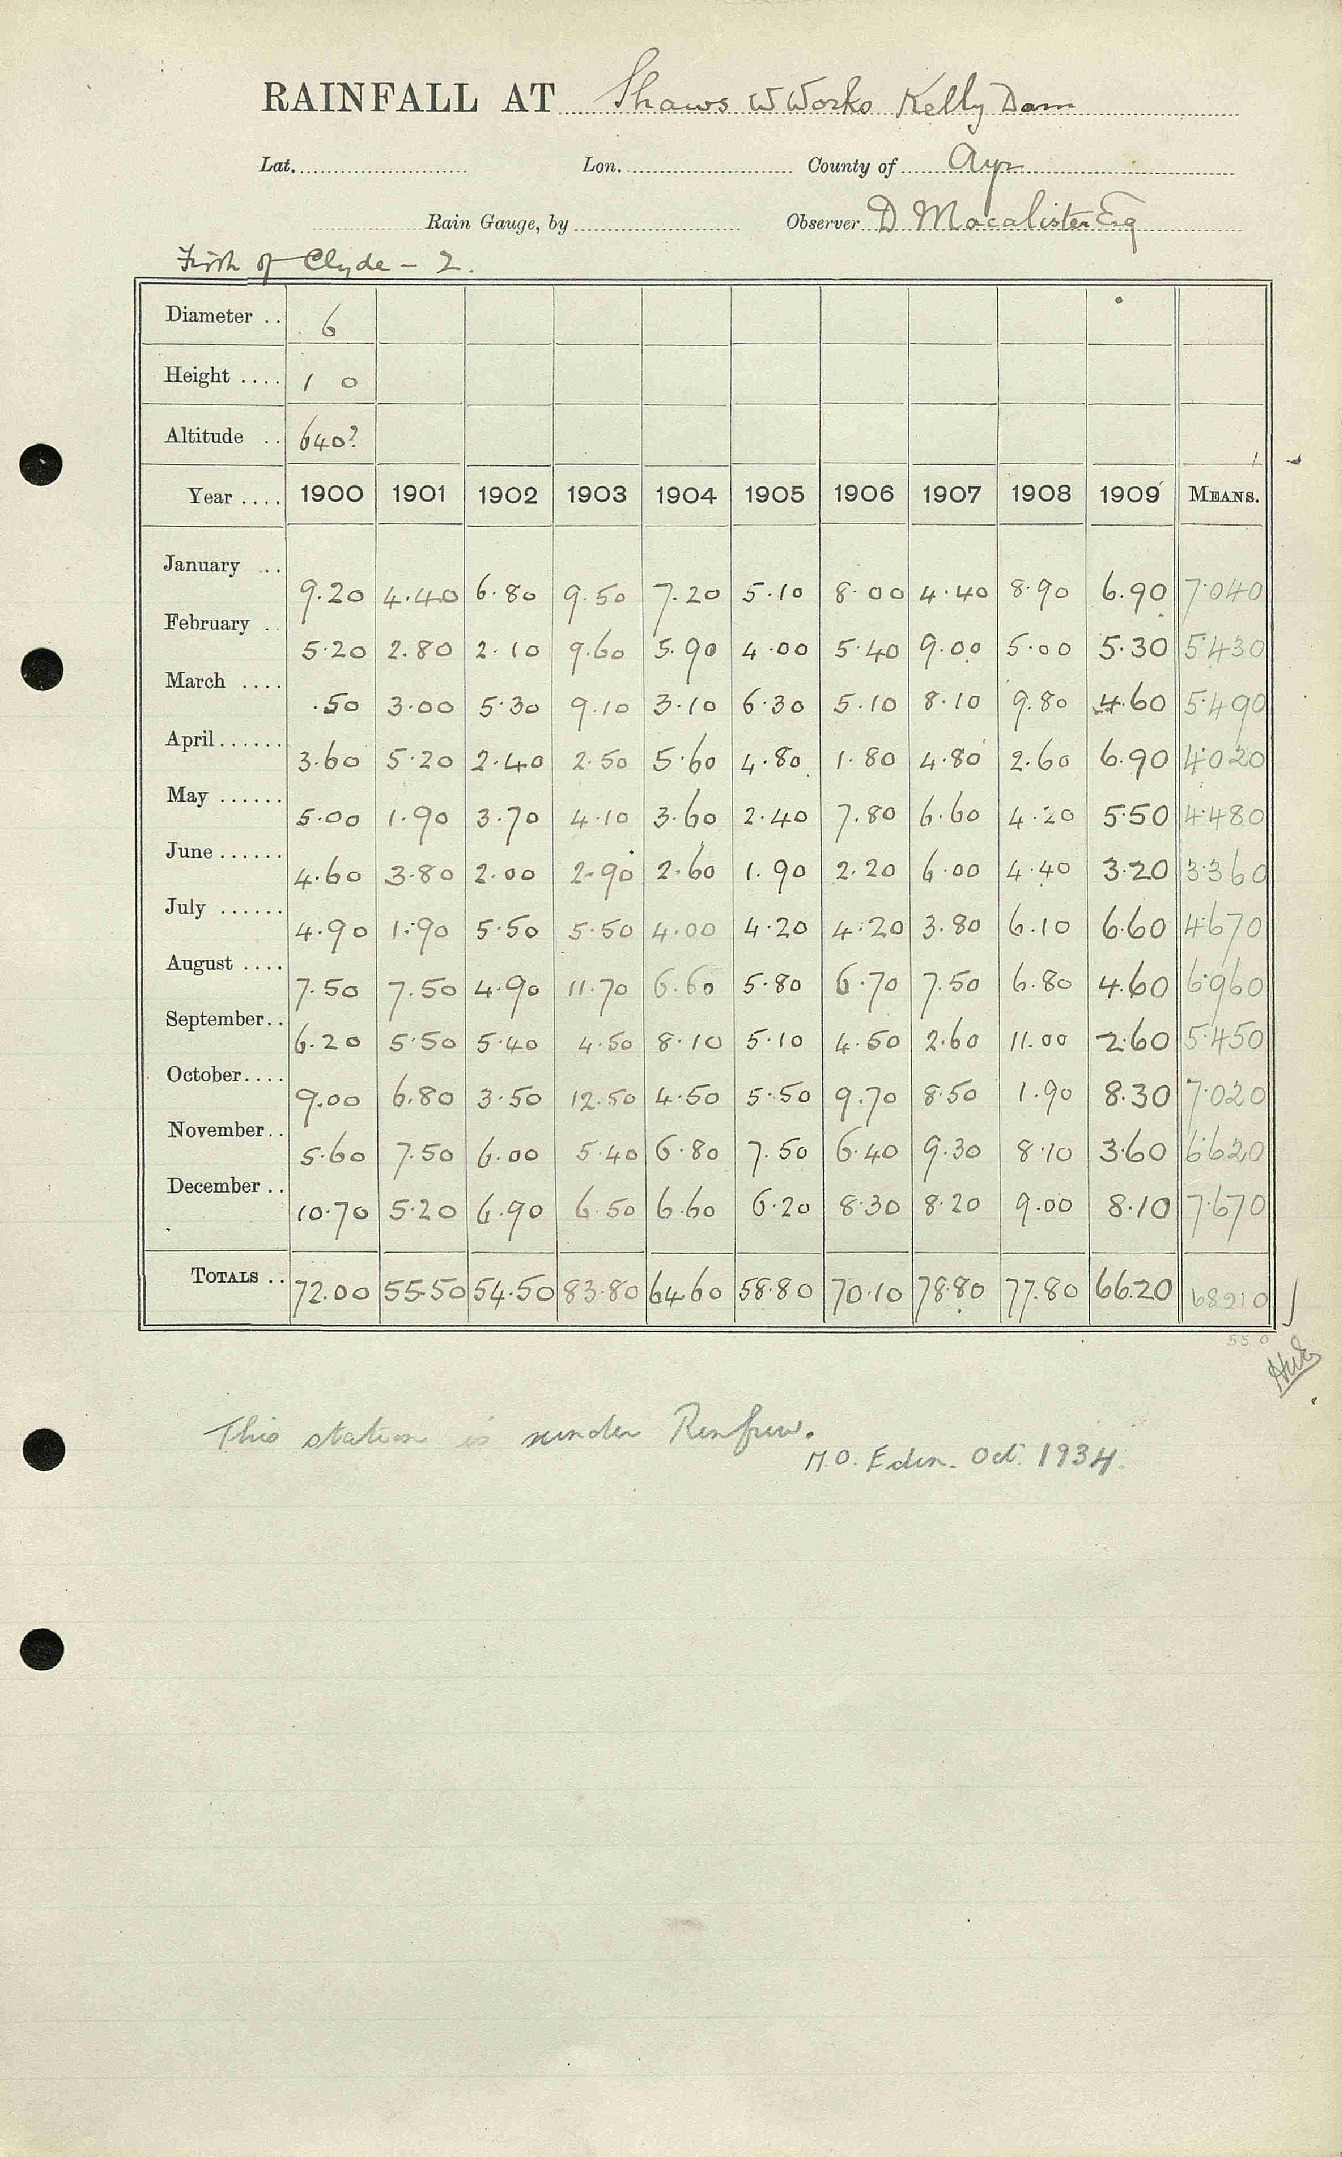 RAINFALL AT Shaws W Works Kelly Dam
Lat. Lon. County of Ayr
Rain Gauge, by Observer D Macalister Esq
Firth of Clyde - 2.
Diameter .. 6
Height .... 1 0
Altitude .. 640?
Year .... 1900 1901 1902 1903 1904 1905 1906 1907 1908 1909 MEANS.
January .. 9.20 4.40 6.80 9.50 7.20 5.10 8.00 4.40 8.90 6.90 7.040
February .. 5.20 2.80 2.10 9.60 5.90 4.00 5.40 9.00 5.00 5.30 5430
March .... .50 3.00 5.30 9.10 3.10 6.30 5.10 8.10 9.80 4.60 5.490
April...... 3.60 5.20 2.40 2.50 5.60 4.80 1.80 4.80 2.60 6.90 4.020
May ...... 5.00 1.90 3.70 4.10 3.60 2.40 7.80 6.60 4.20 5.50 4.480
June...... 4.60 3.80 2.00 2.90 2.60 1.90 2.20 6.00 4.40 3.20 3.360
July ...... 4.90 1.90 5.50 5.50 4.00 4.20 4.20 3.80 6.10 6.60 4.670
August .... 7.50 7.50 4.90 11.70 6.60 5.80 6.70 7.50 6.80 4.60 6.960
September.. 6.20 5.50 5.40 4.50 8.10 5.10 4.50 2.60 11.00 2.60 5.450
October.... 9.00 6.80 3.50 12.50 4.50 5.50 9.70 8.50 1.90 8.30 7.020
November.. 5.60 7.50 6.00 5.40 6.80 7.50 6.40 9.30 8.10 3.60 6.620
December .. 10.70 5.20 6.90 6.50 6.60 6.20 8.30 8.20 9.00 8.10 7.670
TOTALS .. 72.00 55.50 54.50 83.80 64.60 58.80 70.10 78.80 77.80 66.20 68210
55 0
This station is under Renfrew.
M.O. Edin. Oct. 1934.